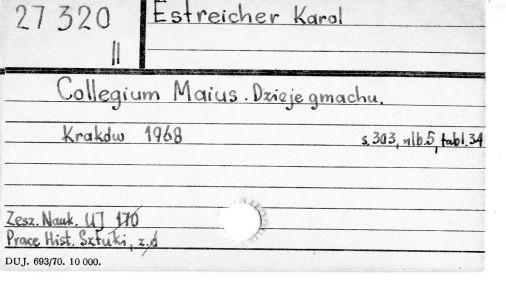 27 320
II
Estreicher Karol
Collegium Maius. Dzieje gmachu.
Kraków 1968
s. 303, nlb. 5, tabl. 34
Zesz. Nauk. UJ 170
Prace Hist. Sztuki, z. 6
DUJ. 693/70. 10 000.